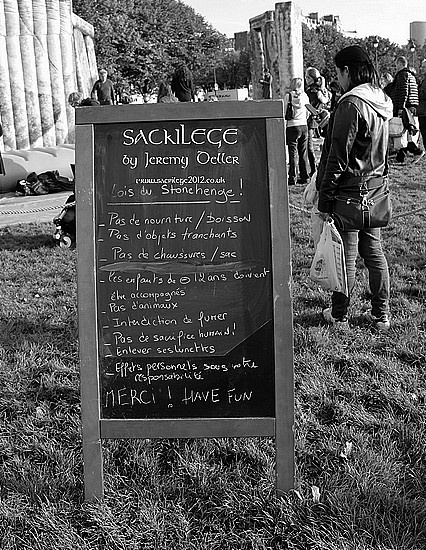 SACRILEGE
by Jeremy Deller
www.sacrilege2012.co.uk
Lois du Stonehenge !
- Pas de nourriture / boisson
- Pas d'objets tranchants
- Pas de chaussures / sac
- les enfants de - 12 ans doivent
être accompagnés
- Pas d'animaux
- Interdiction de fumer
- Pas de sacrifice humain !
- Enlever ses lunettes
- Effets personnels sous votre
responsabilité
MERCI ! HAVE FUN